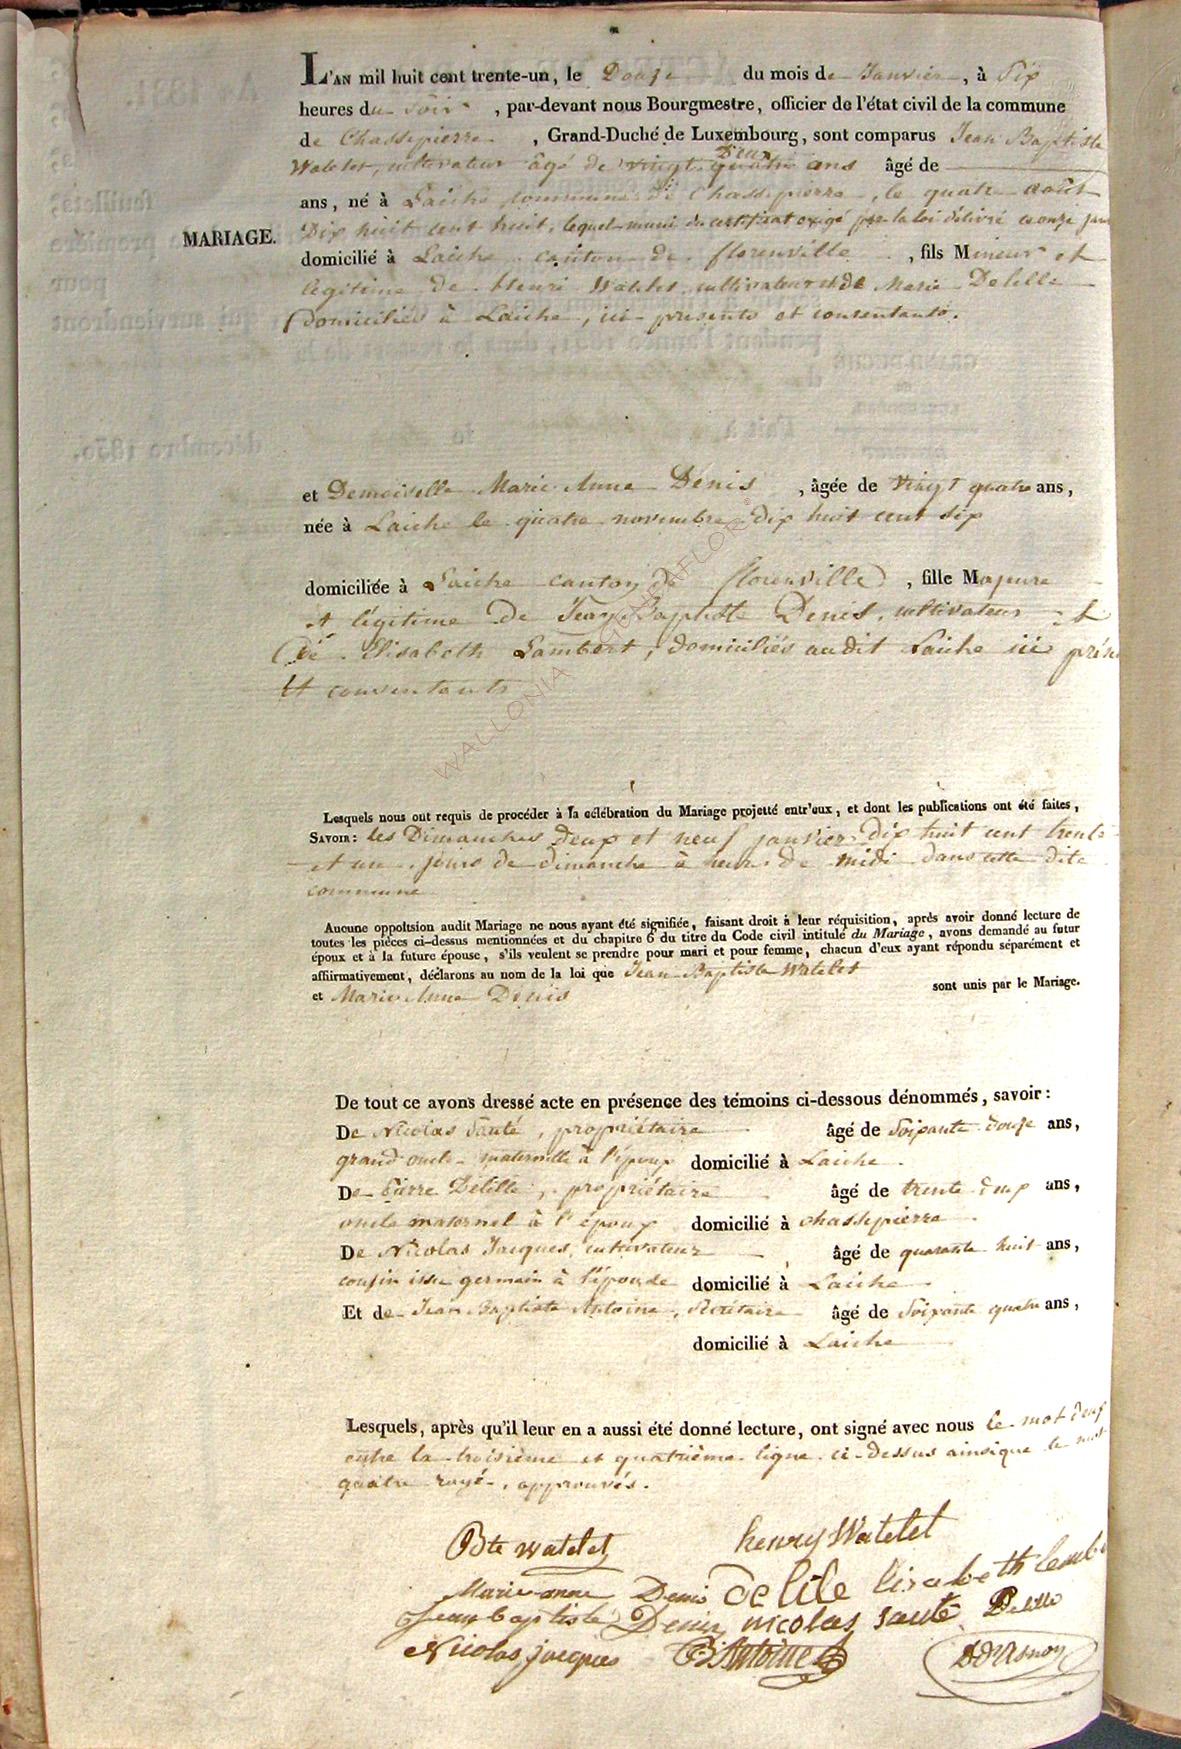 L'AN mil huit cent trente-un, le Douze du mois de Janvier, à Six
heures du Soir, par-devant nous Bourgmestre, officier de l'état civil de la commune
de Chassepierre, Grand-Duché de Luxembourg, sont comparus Jean Baptiste
Deux
Watelet, cultivateur âgé de vingt quatre ans âgé de
ans, né à Laiche commune de Chassepierre, le quatre août
MARIAGE.
Dix huit cent huit, lequel muni du certificat exigé par la loi délivré ce onze janv
domicilié à Laiche canton de florenville, fils Mineur et
légitime de Henri Watelet cultivateur et de Marie Delille
Domiciliés à Laiche, ici présents et consentants.
et Demoiselle Marie Anne Denis, âgée de Vingt quatre ans,
née à Laiche le quatre novembre dix huit cent six
domiciliée à Laiche canton de florenville, fille Majeure
et légitime de Jean Baptiste Denis, cultivateur et
De Elisabeth Lambert, domiciliés audit Laiche ici prése
et consentants
WALLONIA GENEAFLOR
Lesquels nous ont requis de procéder à la célébration du Mariage projetté entr'eux, et dont les publications ont été faites,
SAVOIR: les Dimanches deux et neuf janvier dix huit cent trente
et un jours de dimanche à heure de midi dans cette dite
commune
Aucune oppoitsion audit Mariage ne nous ayant été signifiée, faisant droit à leur réquisition, après avoir donné lecture de
toutes les pièces ci-dessus mentionnées et du chapitre 6 du titre du Code civil intitulé du Mariage, avons demandé au futur
époux et à la future épouse, s'ils veulent se prendre pour mari et pour femme, chacun d'eux ayant répondu séparément et
affirmativement, déclarons au nom de la loi que Jean Baptiste Watelet
et Marie Anne Denis sont unis par le Mariage.
De tout ce avons dressé acte en présence des témoins ci-dessous dénommés, savoir:
De Nicolas Santé, propriétaire âgé de Soixante douze ans,
grand oncle maternelle à l'époux domicilié à Laiche.
De Pierre Delille, propriétaire âgé de trente deux ans,
oncle maternel à l'époux domicilié à chassepierre
De Nicolas Jacques, cultivateur âgé de quarante huit ans,
cousin issu germain à l'épouse domicilié à Laiche
Et de Jean Baptiste Antoine, Secrétaire âgé de Soixante quatre ans,
domicilié à Laiche
Lesquels, après qu'il leur en a aussi été donné lecture, ont signé avec nous le mot deux
entre la troisième et quatrième ligne ci-dessus ainsique le mot
quatre rayé, approuvés.
Bte watelet henry Watelet
Marie anne Denis Delile Lisabeth lamb
Jean baptiste Denis nicolas santé Delille
Nicolas jacques JB Antoine